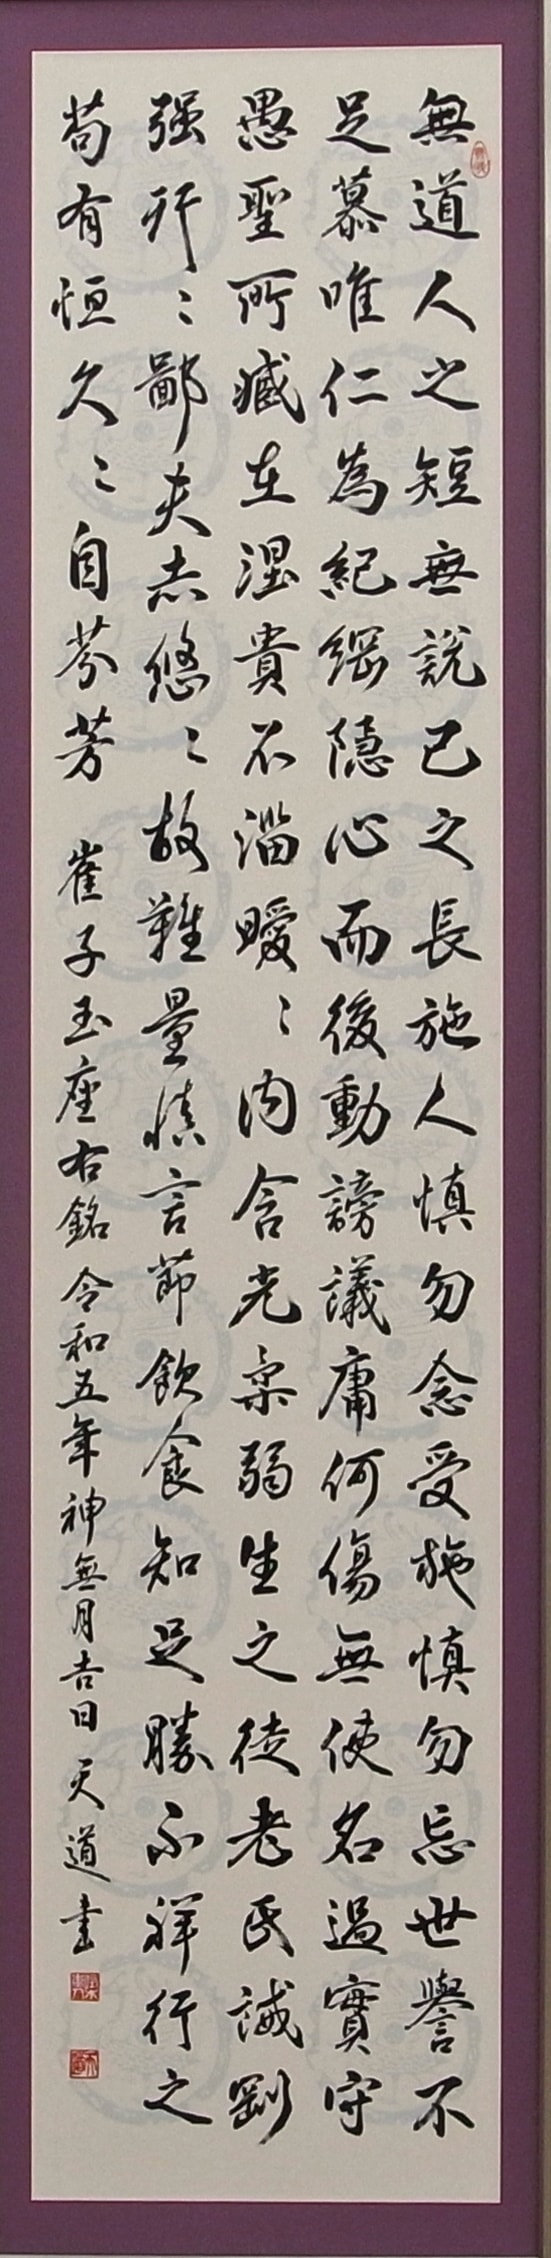 無道人之短無説己之長施人慎勿念受施慎勿忘世譽不
足慕唯仁為紀綱隠心而後動謗議庸何傷無使名過實守
愚聖所臧在涅貴不淄曖〻内含光柔弱生之徒老氏誡剛
强行〻鄙夫志悠〻故難量慎言節飲食知足勝不祥行之
苟有恒久〻自芬芳 崔子玉座右銘 令和五年神無月吉日 天道書